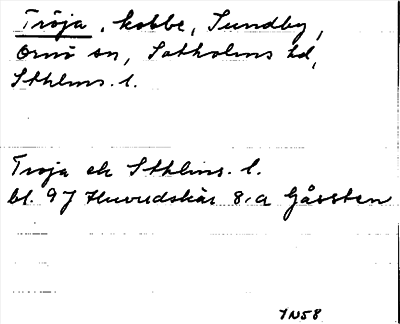 Tröja, kobbe, Sundby,
Ornö sn, Sotholms hd,
Sthlms. l.
Troja ek Sthlms. l.
bl. 97 Huvudskär 8.a Gåssten
IN58